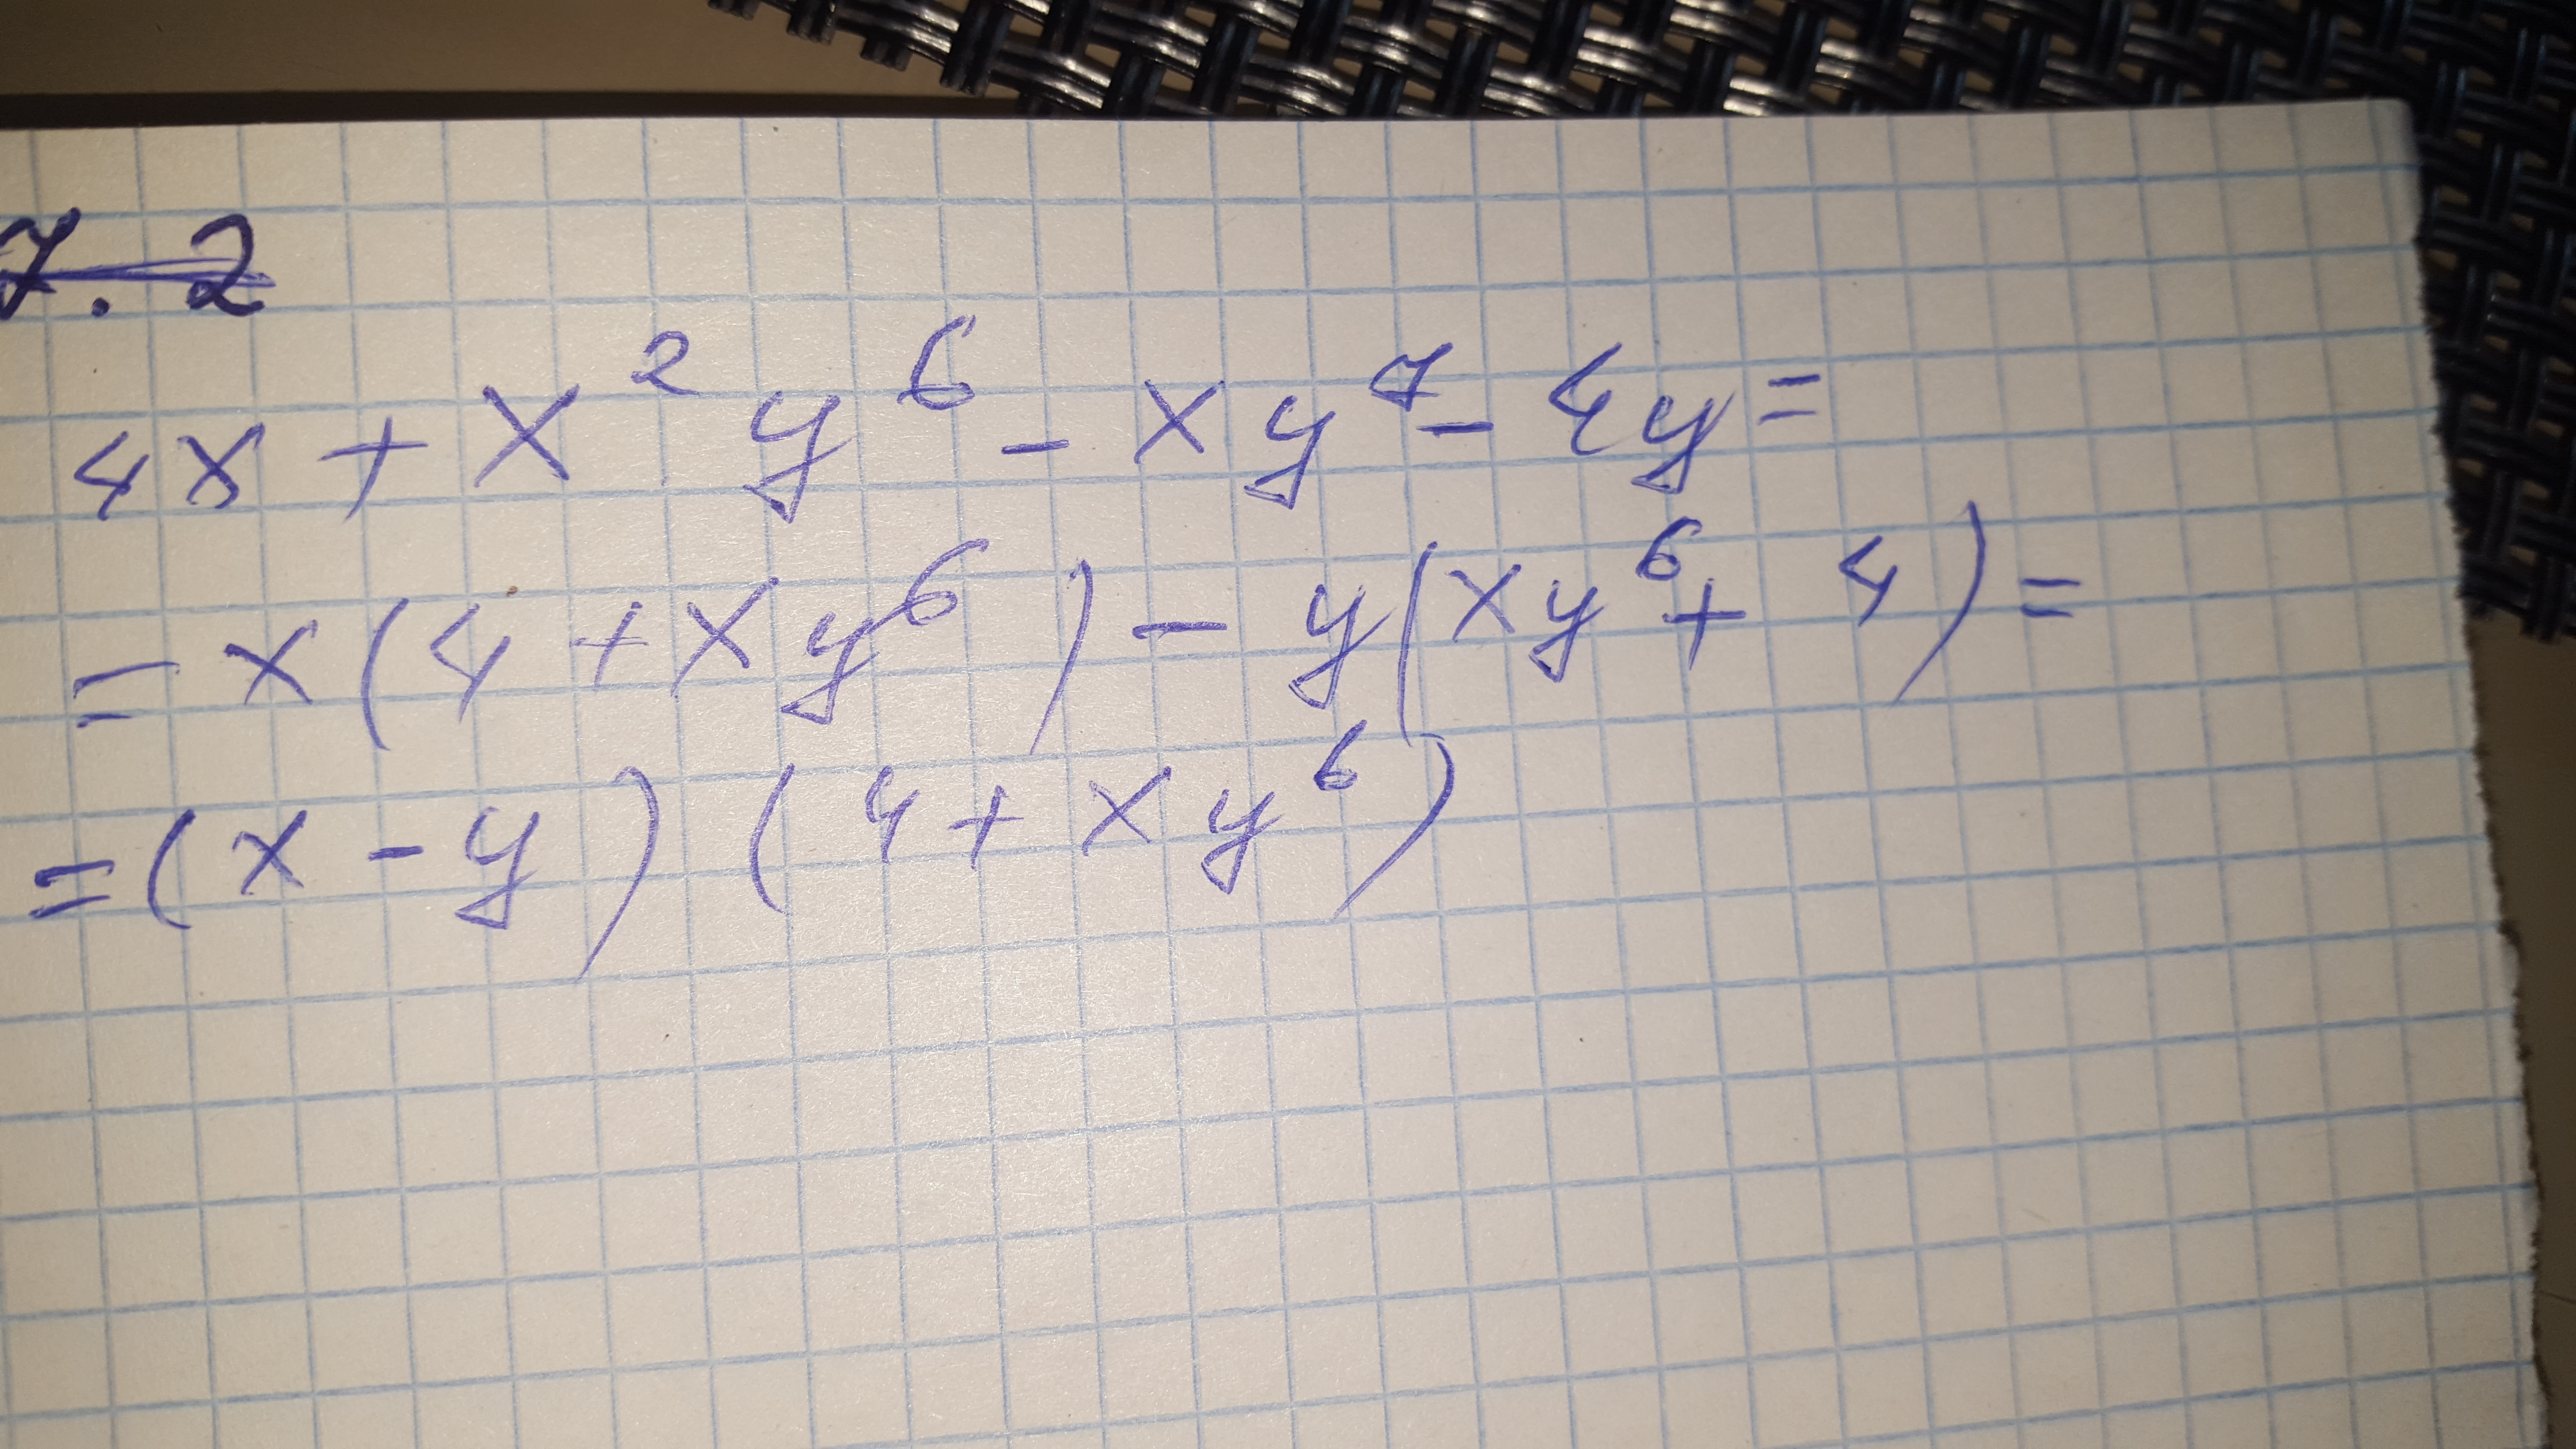 7.2
4x + x²y⁶ - xy⁷ - 4y =
= x(4 + xy⁶) - y(xy⁶ + 4) =
= (x - y) (4 + xy⁶)